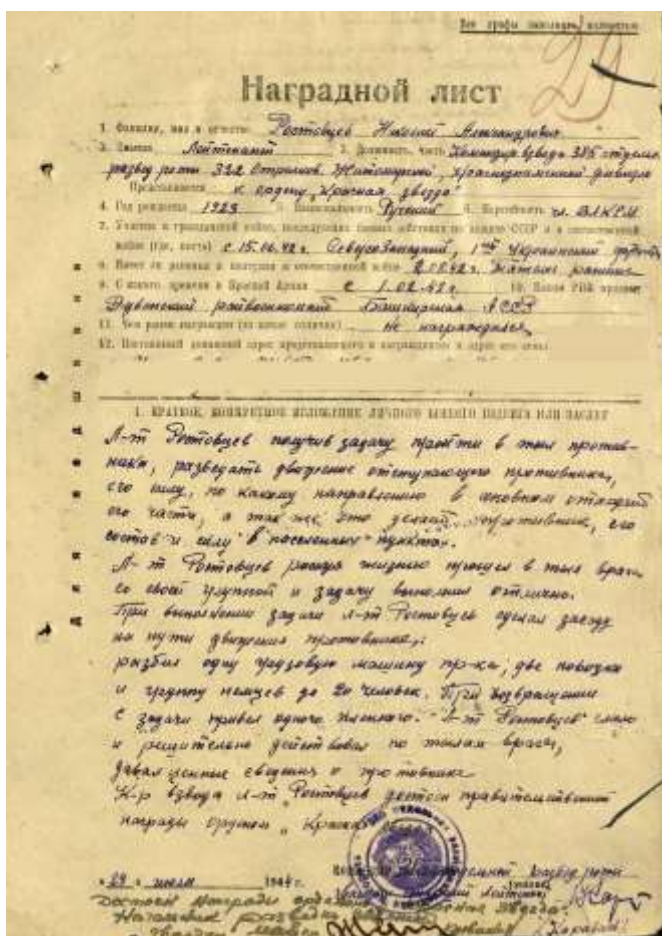 Все графы заполнять полностью
29
Наградной лист
1. Фамилия, имя и отчество Ростовцев Николай Александрович
2. Звание Лейтенант 3. Должность, часть Командир взвода 385 отдельн.
развед роты 322 Стрелков. Житомирской, краснознаменной дивизии
Представляется к ордену „Красная звезда"
4. Год рождения 1923 5. Национальность Русский 6. Партийность чл. ВЛКСМ
7. Участие в гражданской войне, последующих боевых действиях по защите СССР и в отечественной
войне (где, когда) с 15.06.42 г. 1й Украинский фронт
8. Имеет ли ранения и контузии в отечественной войне 42 г. ранение
9. С какого времени в Красной Армии с 1.02.42 г. 10. Каким РВК призван
райвоенкомат Башкирская АССР
11. Чем ранее награжден (за какие отличия) не награждался
12. Постоянный домашний адрес представляемого к награждению и адрес его семьи
I. КРАТКОЕ, КОНКРЕТНОЕ ИЗЛОЖЕНИЕ ЛИЧНОГО БОЕВОГО ПОДВИГА ИЛИ ЗАСЛУГ
Л-т Ростовцев получив задачу пройти в тыл против-
ника, разведать движение отступающего противника,
его силу, по какому направлению в основном отходят
его части, а так же, что делает противник, его
состав и силу в населенных пунктах.
Л-т Ростовцев рискуя жизнью прошел в тыл врага
со своей группой и задачу выполнил отлично.
При выполнении задачи л-т Ростовцев сделал засаду
на пути движения противника,:
разбил одну грузовую машину пр-ка, две повозки
и группу немцев до 20 человек. При возвращении
с задачи привел одного пленного. Л-т Ростовцев смело
и решительно действовал по тылам врага,
давал ценные сведения о противнике
К-р взвода л-т Ростовцев достоин правительственной
награды орденом „Красная звезда"
„29" июля 1944 г.
развед роты
Достоин награды орденом Красная Звезда.
Начальник разведки дивизии
Гвардии майор